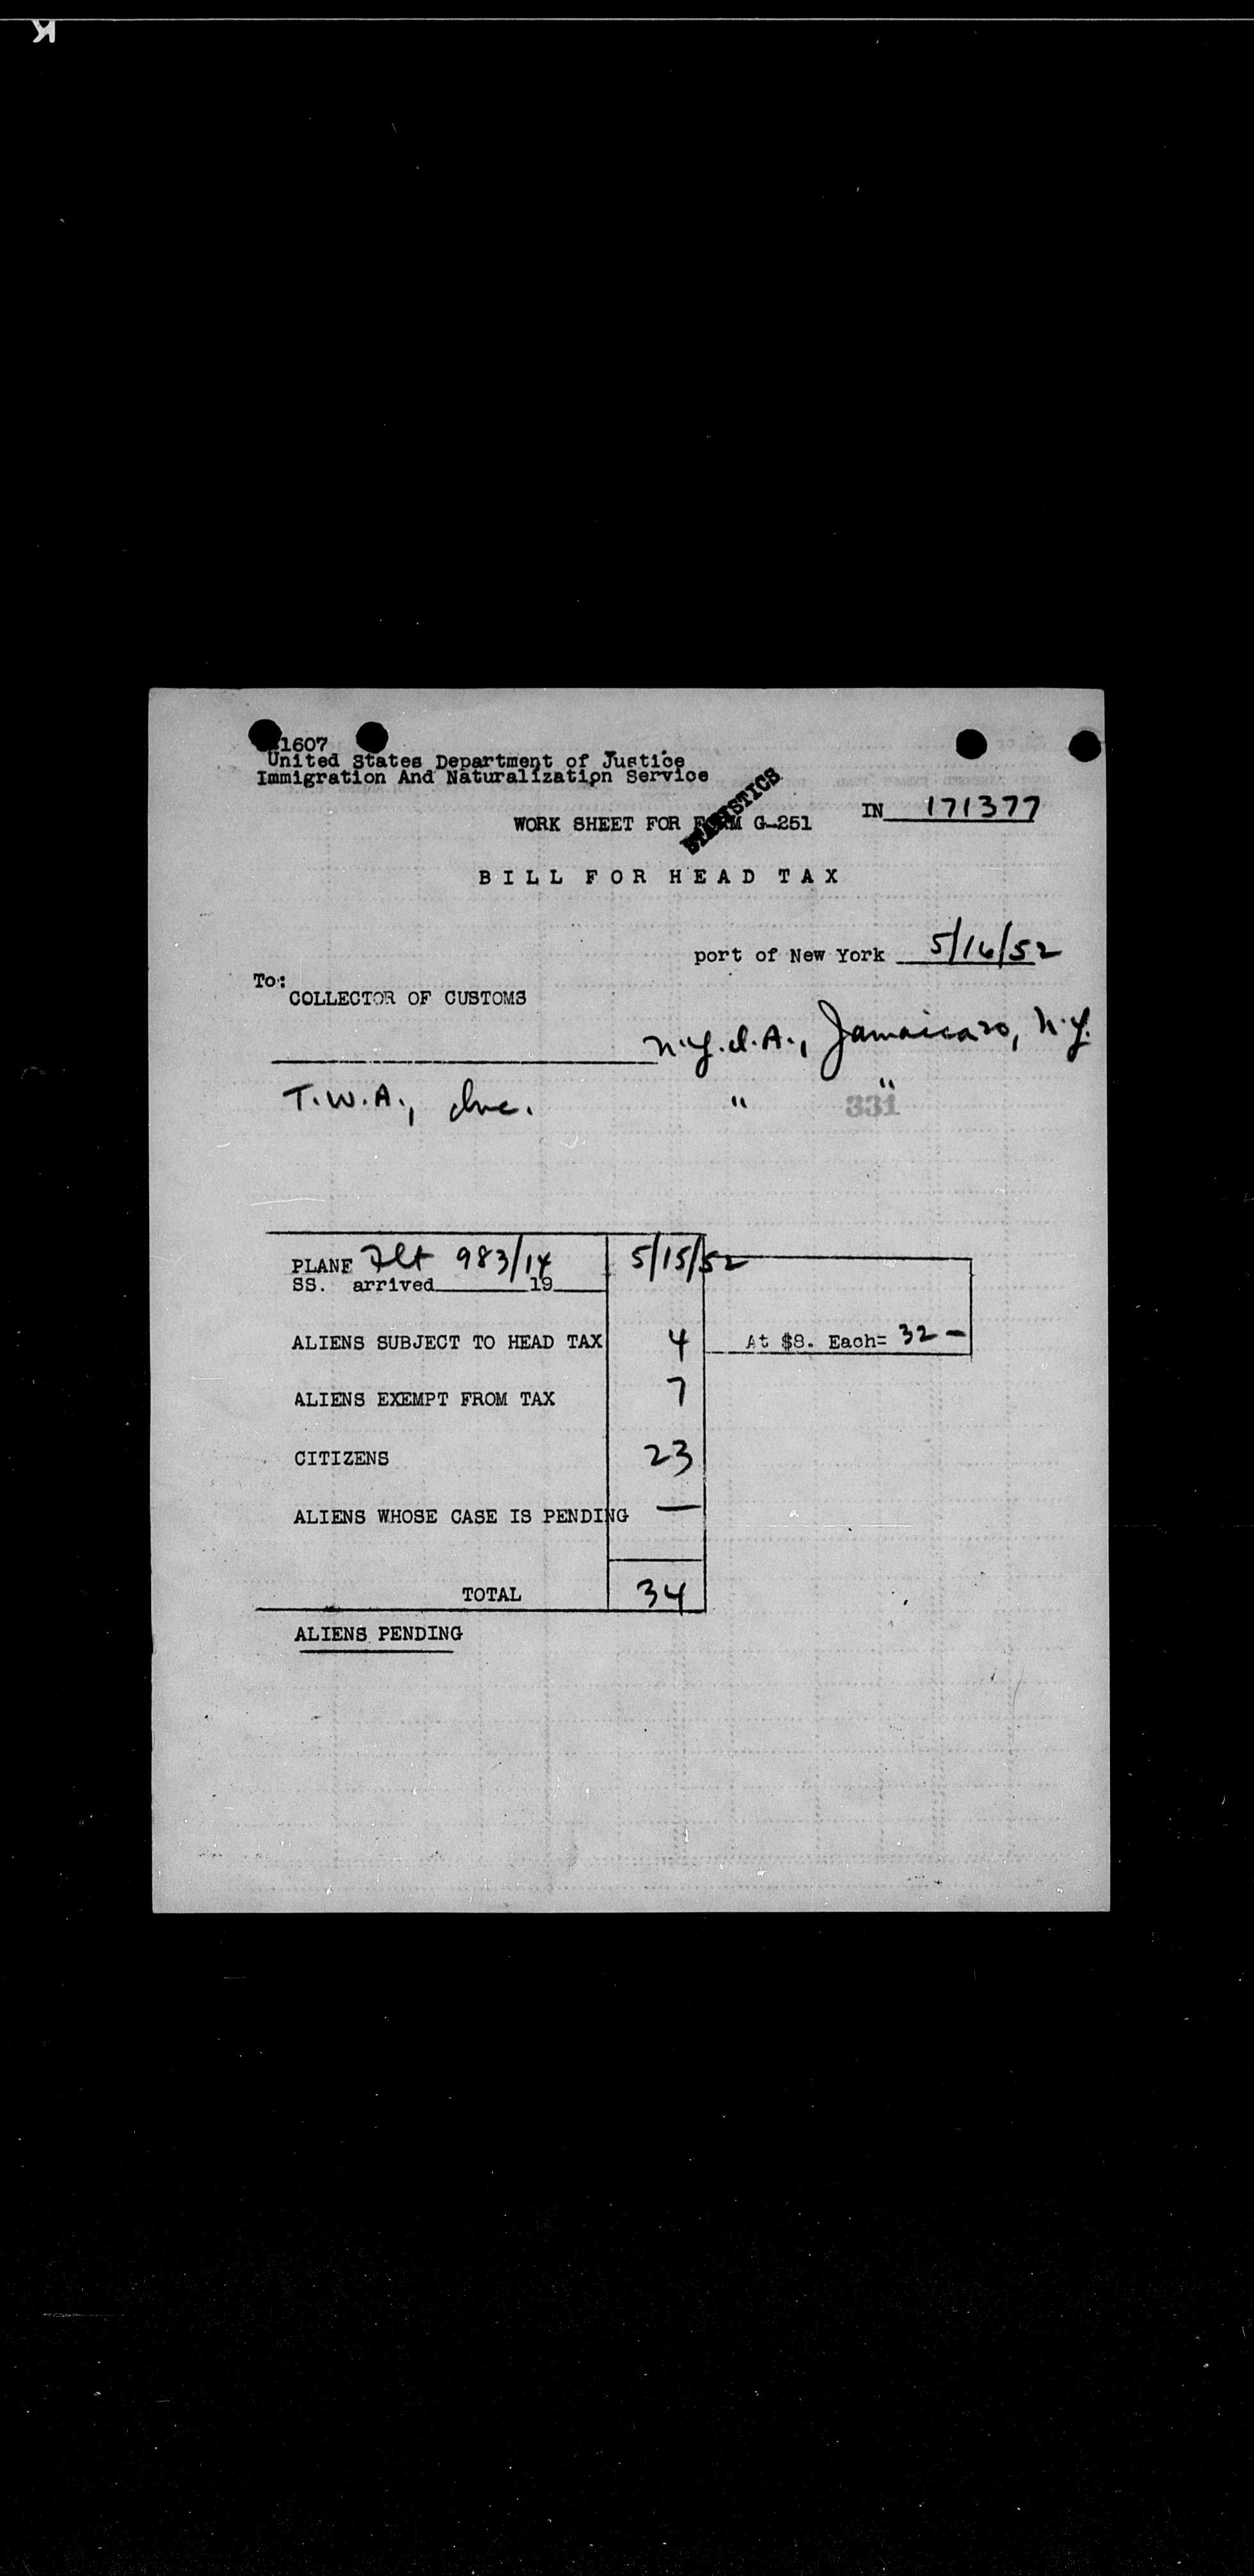 1607
United States Department of Justice
Immigration And Naturalization Service
STATISTICS
WORK SHEET FOR FORM G-251
IN 171377
BILL FOR HEAD TAX
port of New York 5/16/52
To:
COLLECTOR OF CUSTOMS
N.Y.I.A., Jamaica 30, N.Y.
T.W.A., Inc. " "
331
PLANE Flt 983/14 5/15/52
SS. arrived 19
ALIENS SUBJECT TO HEAD TAX 4 At $8. Each= 32 —
ALIENS EXEMPT FROM TAX 7
CITIZENS 23
ALIENS WHOSE CASE IS PENDING —
TOTAL 34
ALIENS PENDING